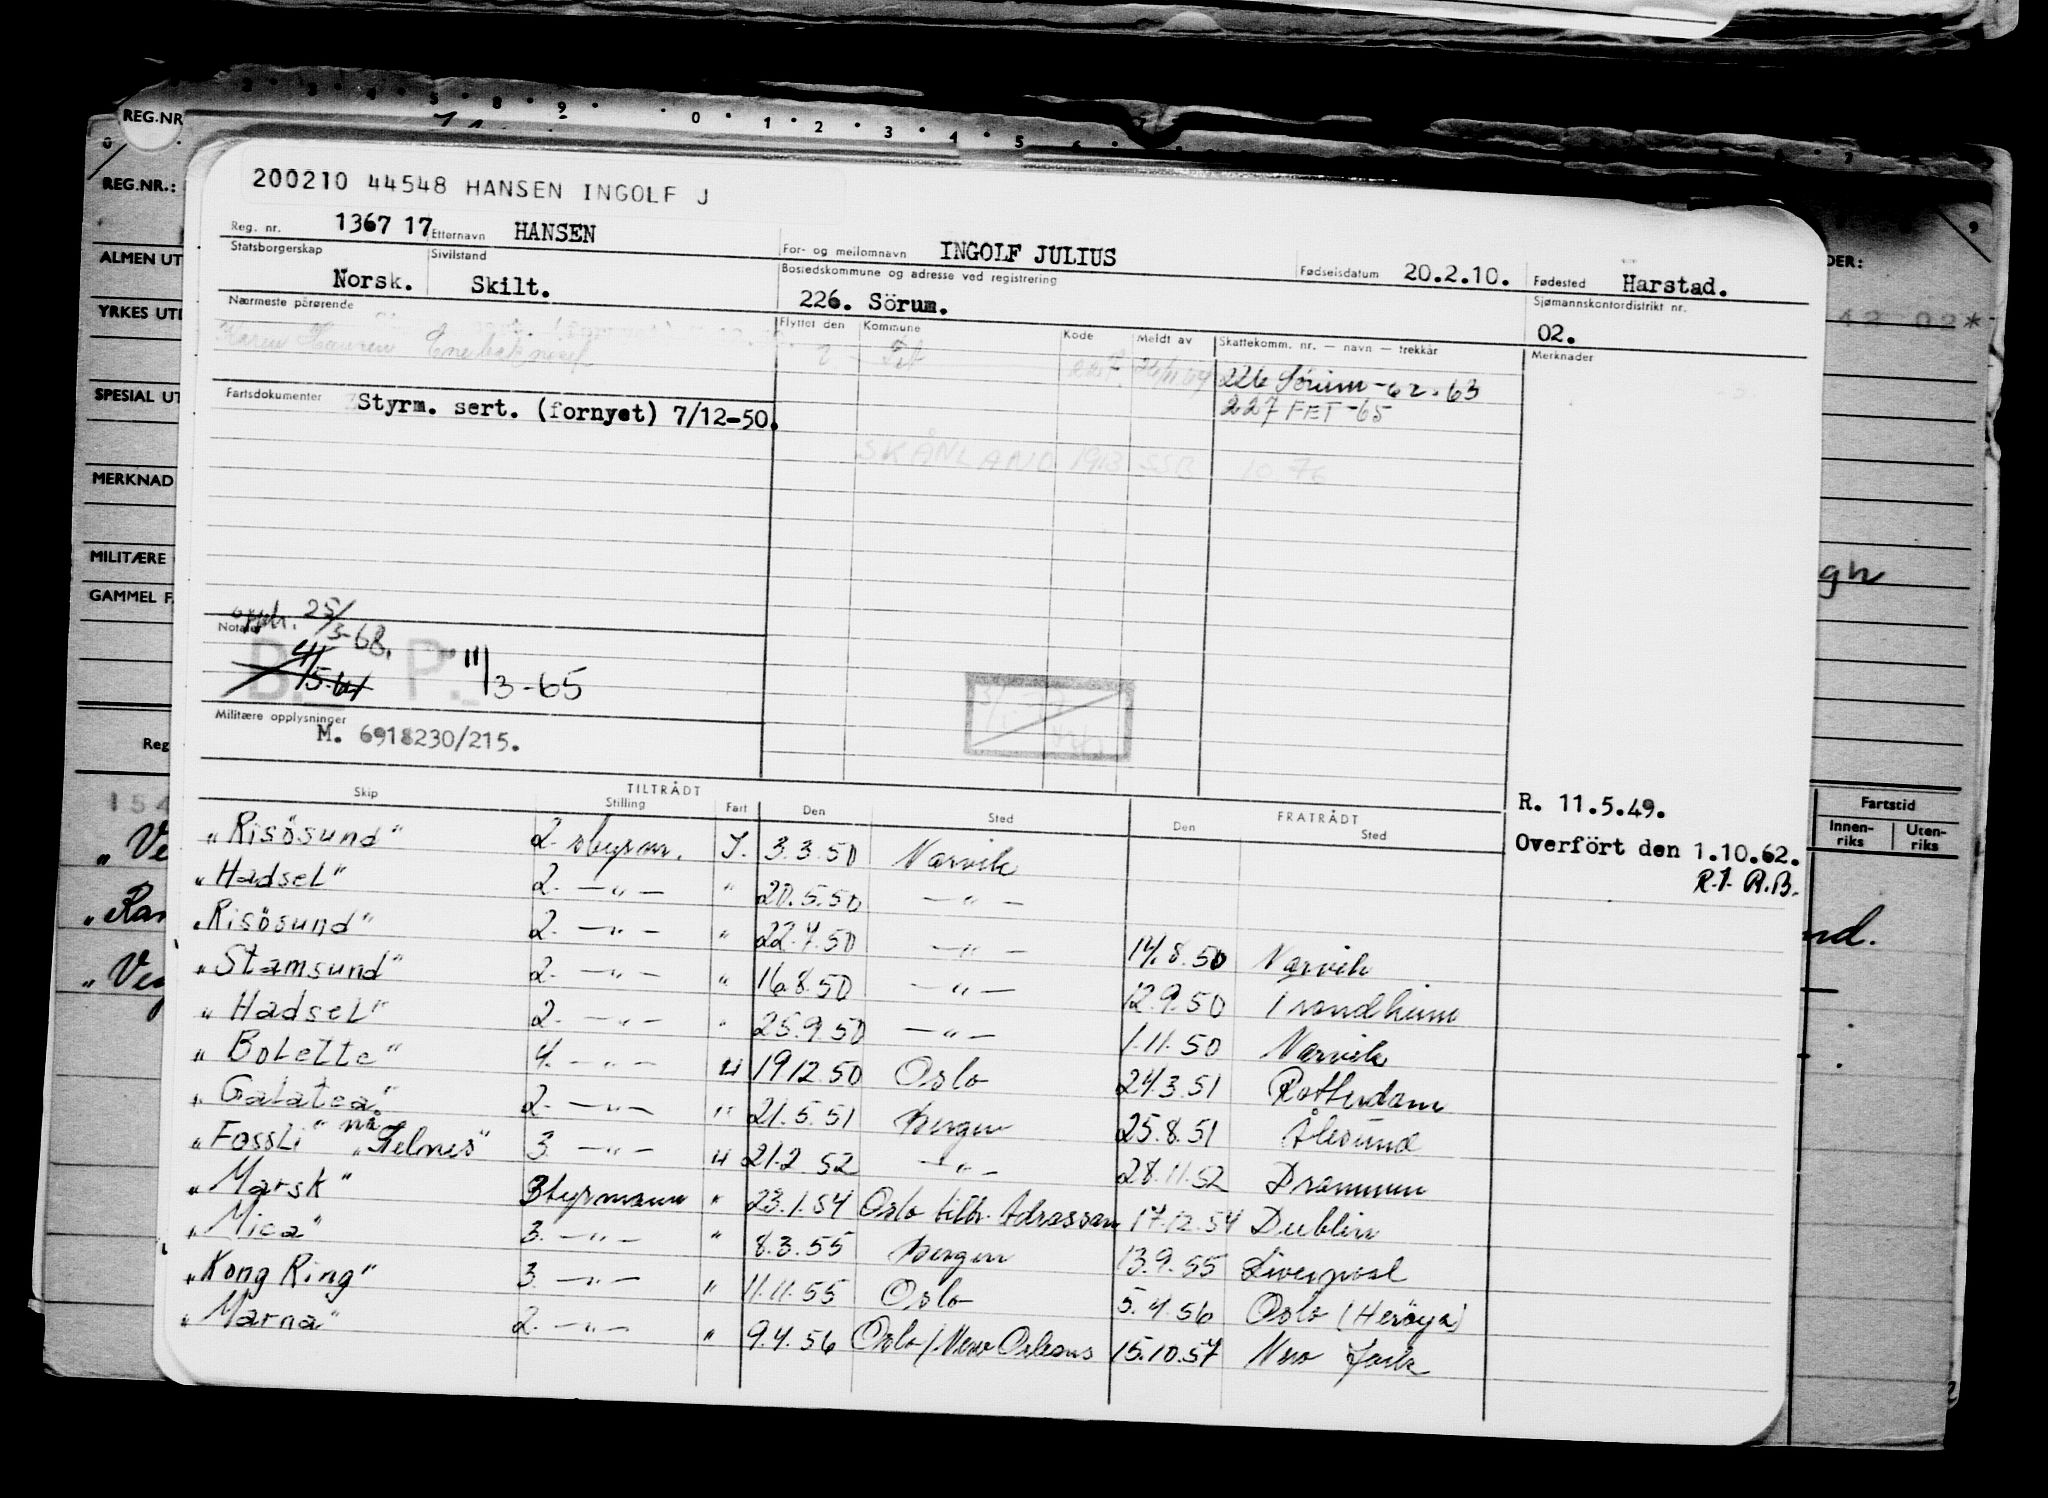 REG.NR
REG.NR.:
ALMEN UT
YRKES UTD
SPESIAL UT
MERKNAD
MILITÆRE
GAMMEL F
200210 44548 HANSEN INGOLF J
Reg. nr. 1367 17 Etternavn HANSEN For- og mellomnavn INGOLF JULIUS Fødselsdatum 20.2.10. Fødested Harstad.
Statsborgerskap Norsk. Sivilstand Skilt. Bostedskommune og adresse ved registrering 226. Sörum. Sjømannskontordistrikt nr. 02.
Nærmeste pårørende Flyttet den Kommune Kode Meldt av Skattekomm. nr. — navn — trekkår Merknader
226 Sörum -62.63
Fartsdokumenter Styrm. sert. (fornyet) 7/12-50. 227 FET -65
SKÅNLAND 1913 SSB 10 76
oppl. 25/3-68.
Notater
B. P.
4/5-61 11/3-65
Militære opplysninger
M. 6918230/215.
R. 11.5.49.
Overfört den 1.10.62.
R.J. A.B.
TILTRÅDT FRATRÅDT
Skip Stilling Fart Den Sted Den Sted
"Risösund" 2. styrm. I. 3.3.50 Narvik
"Hadsel" 2. —"— " 20.5.50 —"—
"Risösund" 2. —"— " 22.7.50 —"— 14.8.50 Narvik
"Stamsund" 2. —"— " 16.8.50 —"— 12.9.50 Trondheim
"Hadsel" 2. —"— " 25.9.50 —"— 1.11.50 Narvik
"Bolette" 4. —"— U 19.12.50 Oslo 24.3.51 Rotterdam
"Galatea" 2. —"— " 21.5.51 Bergen 25.8.51 Ålesund
"Fossli" nå "Telnes" 3. —"— U 21.2.52 —"— 28.11.52 Drammen
"Marsk" Styrmann " 23.1.54 Oslo tiltr. Adrossan 17.12.54 Dublin
"Mica" 3. —"— " 8.3.55 Bergen 13.9.55 Liverpool
"Kong Ring" 3. —"— " 11.11.55 Oslo 5.4.56 Oslo (Herøya)
"Marna" 2. —"— " 9.4.56 Oslo/New Orleans 15.10.57 New York
DER:
42 02*
Fartstid
Innen-riks Uten-riks